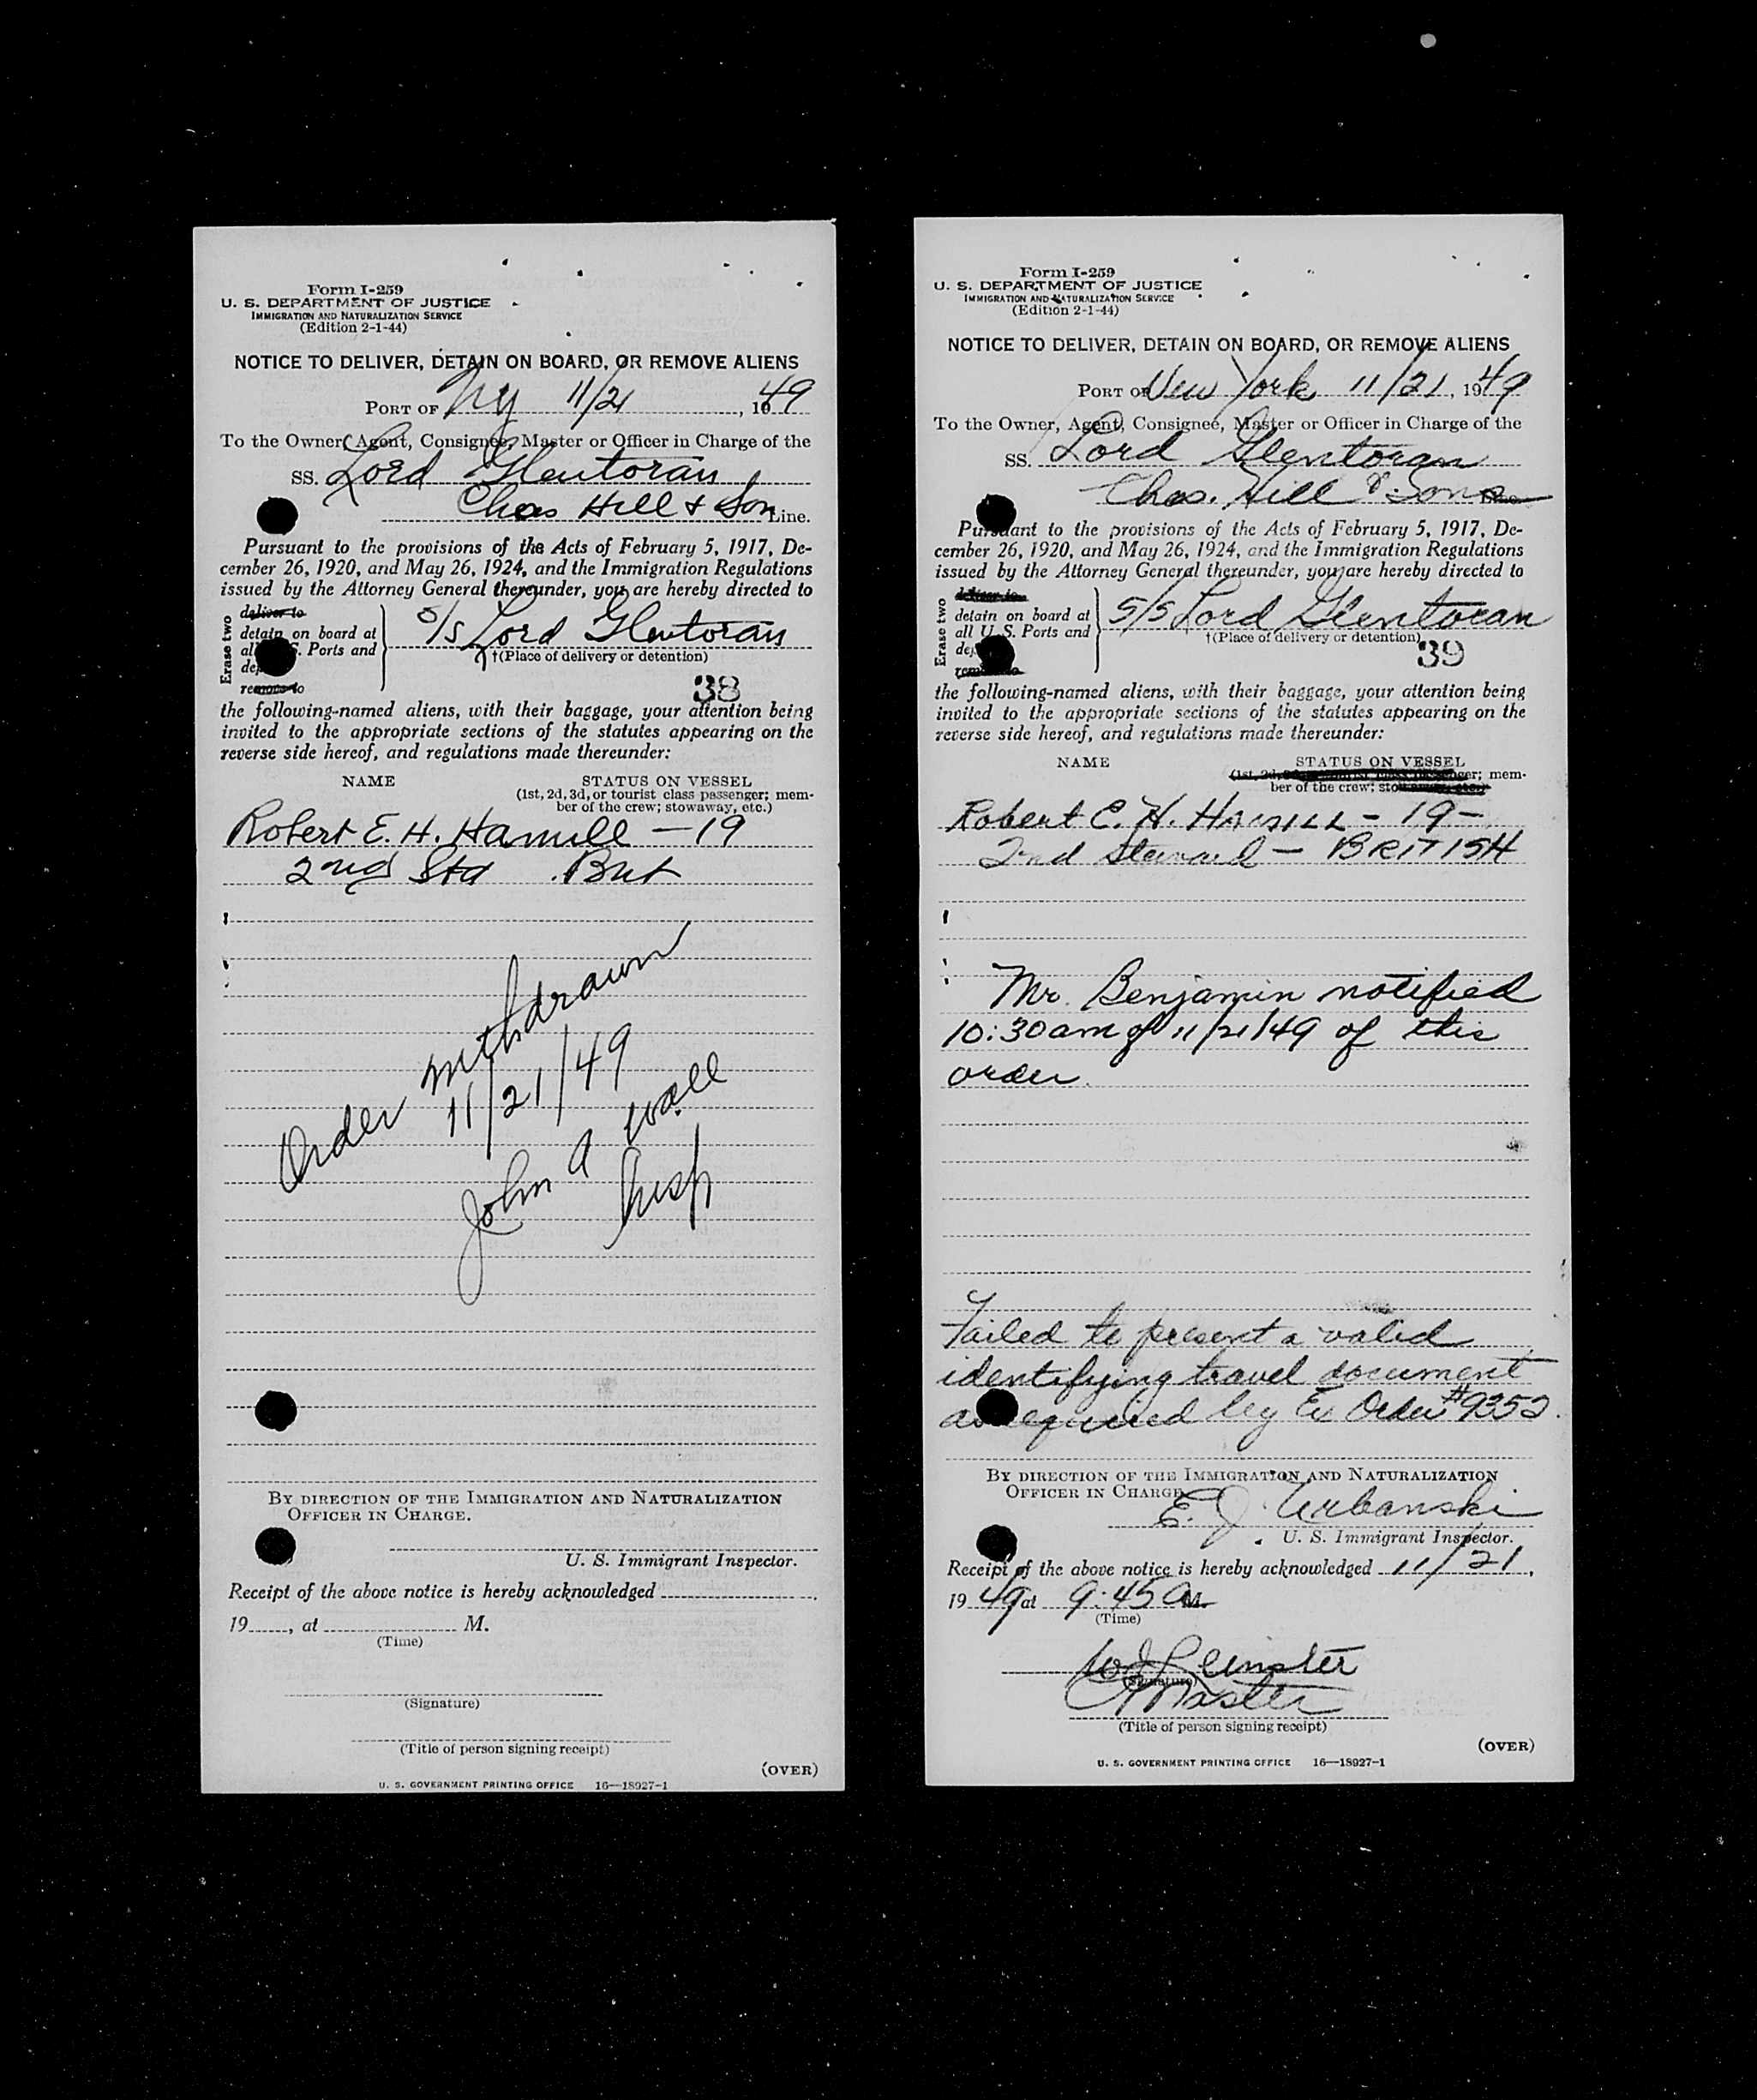 Form I-259
U. S. DEPARTMENT OF JUSTICE
IMMIGRATION AND NATURALIZATION SERVICE
(Edition 2-1-44)
NOTICE TO DELIVER, DETAIN ON BOARD, OR REMOVE ALIENS
PORT OF NY 11/21, 1949
To the Owner, Agent, Consignee, Master or Officer in Charge of the
SS. Lord Glentoran
Chas Hill & Son Line.
Pursuant to the provisions of the Acts of February 5, 1917, De-
cember 26, 1920, and May 26, 1924, and the Immigration Regulations
issued by the Attorney General thereunder, you are hereby directed to
Erase two
deliver to
detain on board at
all S. Ports and
remove to
S/S Lord Glentoran
†(Place of delivery or detention)
38
the following-named aliens, with their baggage, your attention being
invited to the appropriate sections of the statutes appearing on the
reverse side hereof, and regulations made thereunder:
NAME STATUS ON VESSEL
(1st, 2d, 3d, or tourist class passenger; mem-
ber of the crew; stowaway, etc.)
Robert E. H. Hamill - 19
2nd Std Brit
Order Withdrawn
11/21/49
John A Wall
Insp
BY DIRECTION OF THE IMMIGRATION AND NATURALIZATION
OFFICER IN CHARGE.
U. S. Immigrant Inspector.
Receipt of the above notice is hereby acknowledged
19, at M.
(Time)
(Signature)
(Title of person signing receipt)
(OVER)
U. S. GOVERNMENT PRINTING OFFICE 16—18927-1
Form I-259
U. S. DEPARTMENT OF JUSTICE
IMMIGRATION AND NATURALIZATION SERVICE
(Edition 2-1-44)
NOTICE TO DELIVER, DETAIN ON BOARD, OR REMOVE ALIENS
PORT OF New York 11/21, 1949
To the Owner, Agent, Consignee, Master or Officer in Charge of the
SS. Lord Glentoran
Chas. Hill & Sons Line
Pursuant to the provisions of the Acts of February 5, 1917, De-
cember 26, 1920, and May 26, 1924, and the Immigration Regulations
issued by the Attorney General thereunder, you are hereby directed to
Erase two
deliver to
detain on board at
all U. S. Ports and
S/S Lord Glentoran
†(Place of delivery or detention)
39
the following-named aliens, with their baggage, your attention being
invited to the appropriate sections of the statutes appearing on the
reverse side hereof, and regulations made thereunder:
NAME STATUS ON VESSEL
(1st, 2d, passenger; mem-
ber of the crew;
Robert E. H. HAMILL - 19 -
2nd Steward - BRITISH
Mr. Benjamin notified
10:30am of 11/21/49 of this
order.
Failed to present a valid
identifying travel document
as required by Ex Order #9352.
BY DIRECTION OF THE IMMIGRATION AND NATURALIZATION
OFFICER IN CHARGE
E. J. Urbanski
U. S. Immigrant Inspector.
Receipt of the above notice is hereby acknowledged 11/21,
1949 at 9:45 AM.
(Time)
W J Leinster
(Signature)
Master
(Title of person signing receipt)
(OVER)
U. S. GOVERNMENT PRINTING OFFICE 16—18927-1